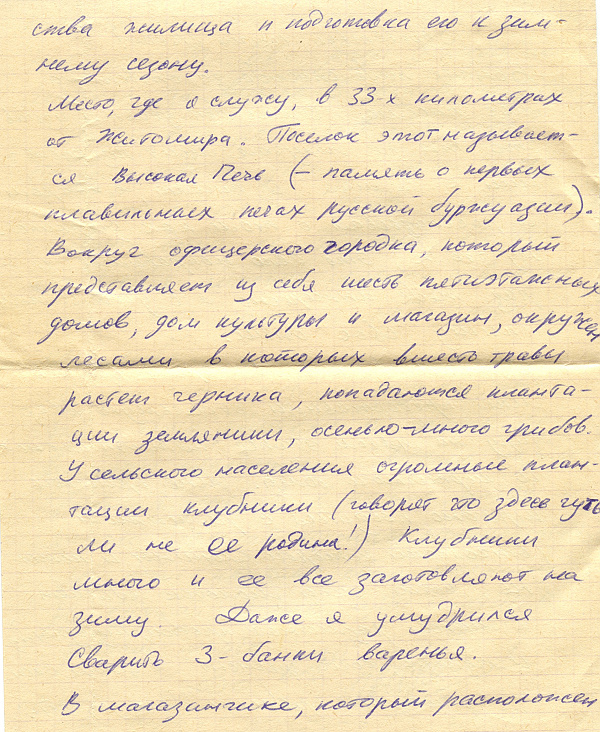 ства жилища и подготовка его к зим-
нему сезону.
Место, где я служу, в 33-х километрах
от Житомира. Поселок этот называет-
ся Высокая Печь (– память о первых
плавильных печах русской буржуазии).
Вокруг офицерского городка, который
представляет из себя шесть пятиэтажных
домов, дом культуры и магазин, окружен
лесами в которых вместо травы
растет черника, попадаются планта-
ции земляники, осенью – много грибов.
У сельского населения огромные план-
тации клубники (говорят это здесь чуть
ли не ее родина!) Клубники
много и ее все заготовляют на
зиму. Даже я умудрился
Сварить 3-банки варенья.
В магазинчике, который расположен